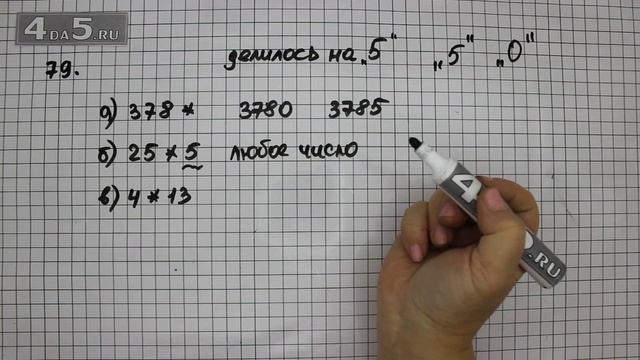 4DA5.RU
79. делилось на „5“ „5“ „0“
а) 378 * 3780 3785
б) 25 * 5 любое число
в) 4 * 13
4
.RU